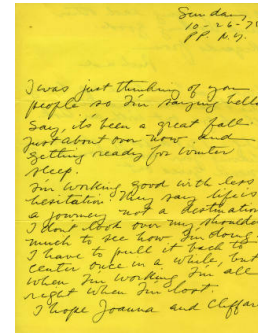 Sunday
10-26-7
P.P. N.Y.
I was just thinking of you
people so I'm saying hello
Say, it's been a great fall.
Just about over now and
getting ready for winter
sleep.
I'm working good with less
hesitation. They say life is
a journey not a destination
I don't look over my shoulder
much to see how I'm doing.
I have to pull it back to
center once in a while, but
when I'm working I'm all
right when I'm lost.
I hope Joanna and Cliffor